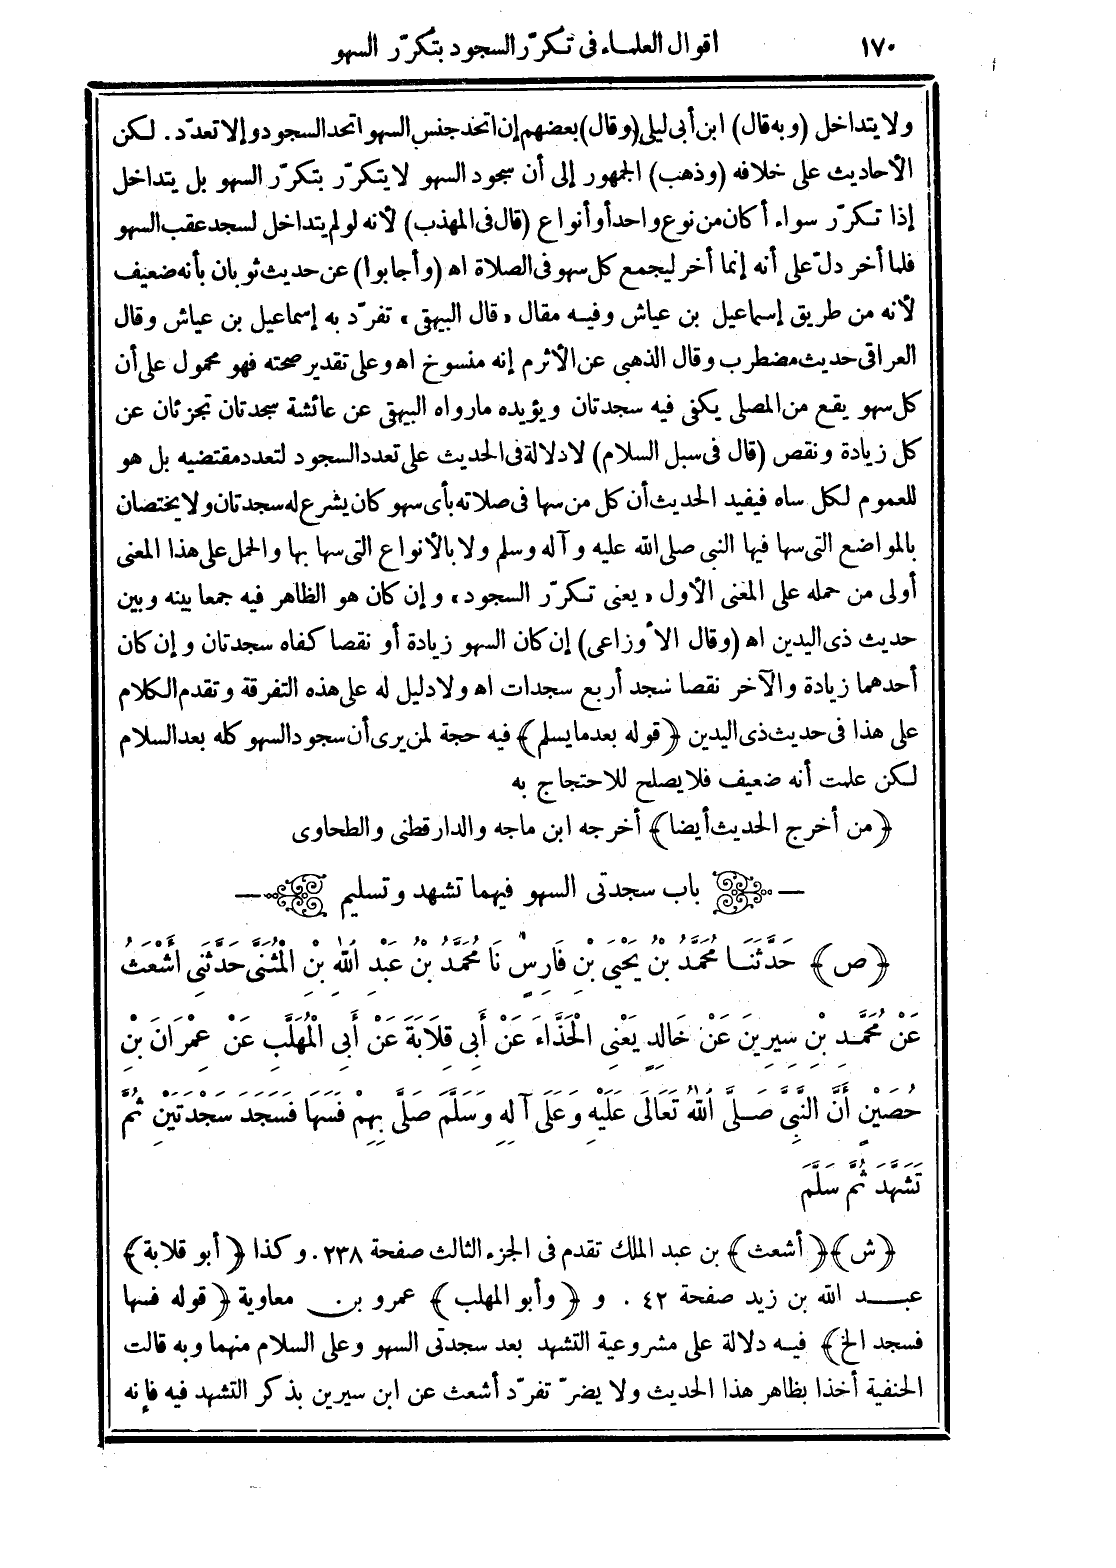 ١٧٠
اقوال العلماء فى تكرّر السجود بتكرّر السهو
ولا يتداخل (وبه قال) ابن أبى ليلى (وقال) بعضهم إن اتحد جنس السهو اتحد السجود وإلا تعدّد. لكن
الأحاديث على خلافه (وذهب) الجمهور إلى أن سجود السهو لا يتكرّر بتكرّر السهو بل يتداخل
إذا تكرّر سواء أكان من نوع واحد أو أنواع (قال فى المهذب) لأنه لو لم يتداخل لسجد عقب السهو
فلما أخر دلّ على أنه إنما أخر ليجمع كل سهو فى الصلاة اه (وأجابوا) عن حديث ثوبان بأنه ضعيف
لأنه من طريق إسماعيل بن عياش وفيه مقال «قال البيهقى» تفرّد به إسماعيل بن عياش وقال
العراقى حديث مضطرب وقال الذهبى عن الأثرم إنه منسوخ اه وعلى تقدير صحته فهو محمول على أن
كل سهو يقع من المصلى يكفى فيه سجدتان ويؤيده مارواه البيهقى عن عائشة سجدتان تجزئان عن
كل زيادة ونقص (قال فى سبل السلام) لا دلالة فى الحديث على تعدد السجود لتعدد مقتضيه بل هو
للعموم لكل ساه فيفيد الحديث أن كل من سها فى صلاته بأى سهو كان يشرع له سجدتان ولا يختصان
بالمواضع التى سها فيها النبى صلى الله عليه وآله وسلم ولا بالأنواع التى سها بها والحمل على هذا المعنى
أولى من حمله على المعنى الأول «يعنى تكرّر السجود» وإن كان هو الظاهر فيه جمعا بينه وبين
حديث ذى اليدين اه (وقال الأوزاعى) إن كان السهو زيادة أو نقصا كفاه سجدتان وإن كان
أحدهما زيادة والآخر نقصا سجد أربع سجدات اه ولا دليل له على هذه التفرقة وتقدم الكلام
على هذا فى حديث ذى اليدين ﴿قوله بعد ما يسلم﴾ فيه حجة لمن يرى أن سجود السهو كله بعد السلام
لكن علمت أنه ضعيف فلا يصلح للاحتجاج به
﴿من أخرج الحديث أيضا﴾ أخرجه ابن ماجه والدارقطنى والطحاوى
— باب سجدتى السهو فيهما تشهد وتسليم —
﴿ص﴾ حَدَّثَنَا مُحَمَّدُ بْنُ يَحْيَى بْنِ فَارِسٍ نَا مُحَمَّدُ بْنُ عَبْدِ اللهِ بْنِ الْمُثَنَّى حَدَّثَنِى أَشْعَثُ
عَنْ مُحَمَّدِ بْنِ سِيرِينَ عَنْ خَالِدٍ يَعْنِى الْحَذَّاءَ عَنْ أَبِى قِلَابَةَ عَنْ أَبِى الْمُهَلَّبِ عَنْ عِمْرَانَ بْنِ
حُصَيْنٍ أَنَّ النَّبِىَّ صَلَّى اللهُ تَعَالَى عَلَيْهِ وَعَلَى آلِهِ وَسَلَّمَ صَلَّى بِهِمْ فَسَهَا فَسَجَدَ سَجْدَتَيْنِ ثُمَّ
تَشَهَّدَ ثُمَّ سَلَّمَ
﴿ش﴾ ﴿أشعث﴾ بن عبد الملك تقدم فى الجزء الثالث صفحة ٢٣٨. وكذا ﴿أبو قلابة﴾
عبد الله بن زيد صفحة ٤٢. و ﴿وأبو المهلب﴾ عمرو بن معاوية ﴿قوله فسها
فسجد الخ﴾ فيه دلالة على مشروعية التشهد بعد سجدتى السهو وعلى السلام منهما وبه قالت
الحنفية أخذا بظاهر هذا الحديث ولا يضرّ تفرّد أشعث عن ابن سيرين بذكر التشهد فيه فإنه